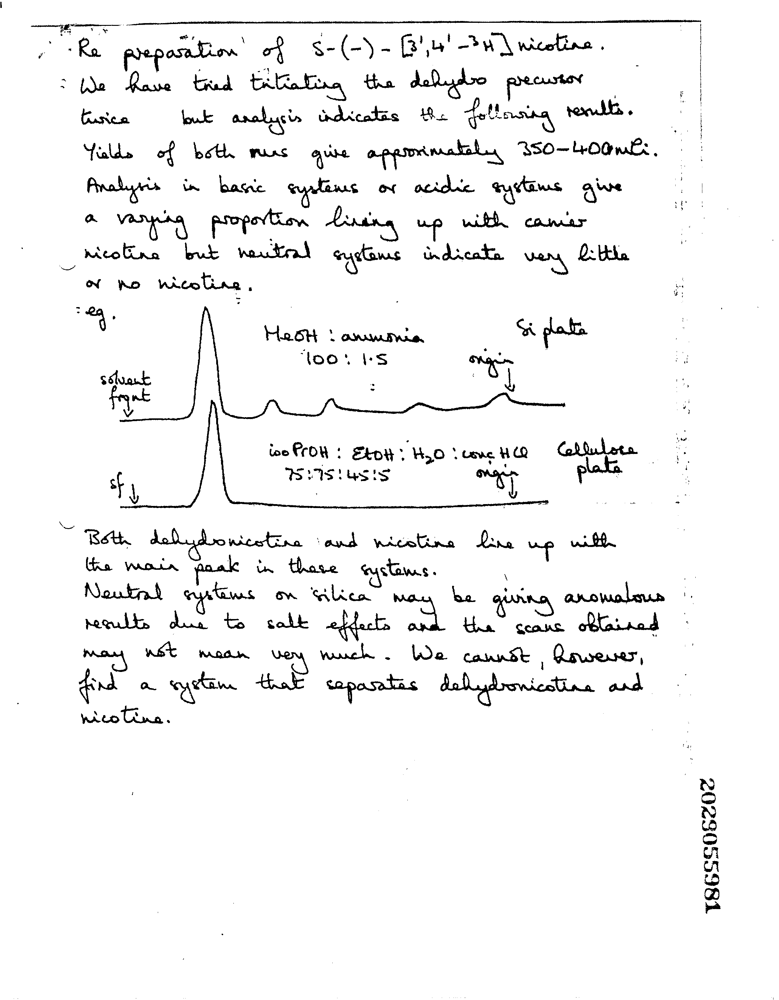 Re preparation of S-(-)-[3',4'-³H] nicotine.
We have tried tritiating the dehydro precursor
twice but analysis indicates the following results.
Yields of both runs give approximately 350-400mCi.
Analysis in basic systems or acidic systems give
a varying proportion lining up with carrier
nicotine but neutral systems indicate very little
or no nicotine.
eg.
MeOH : ammonia
100 : 1·5
Si plate
origin
solvent
front
isoPrOH : EtOH : H₂O : conc HCl
75:75:45:5
Cellulose
plate
origin
sf
Both dehydronicotine and nicotine line up with
the main peak in these systems.
Neutral systems on silica may be giving anomalous
results due to salt effects and the scans obtained
may not mean very much. We cannot, however,
find a system that separates dehydronicotine and
nicotine.
2029055981